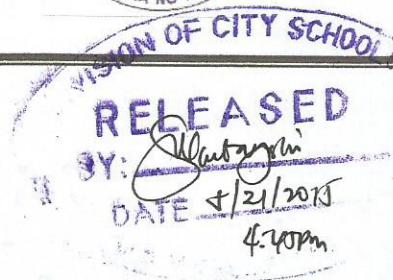 VISION OF CITY SCHOOL
RELEASED
BY:
DATE /21/2015
4:40pm